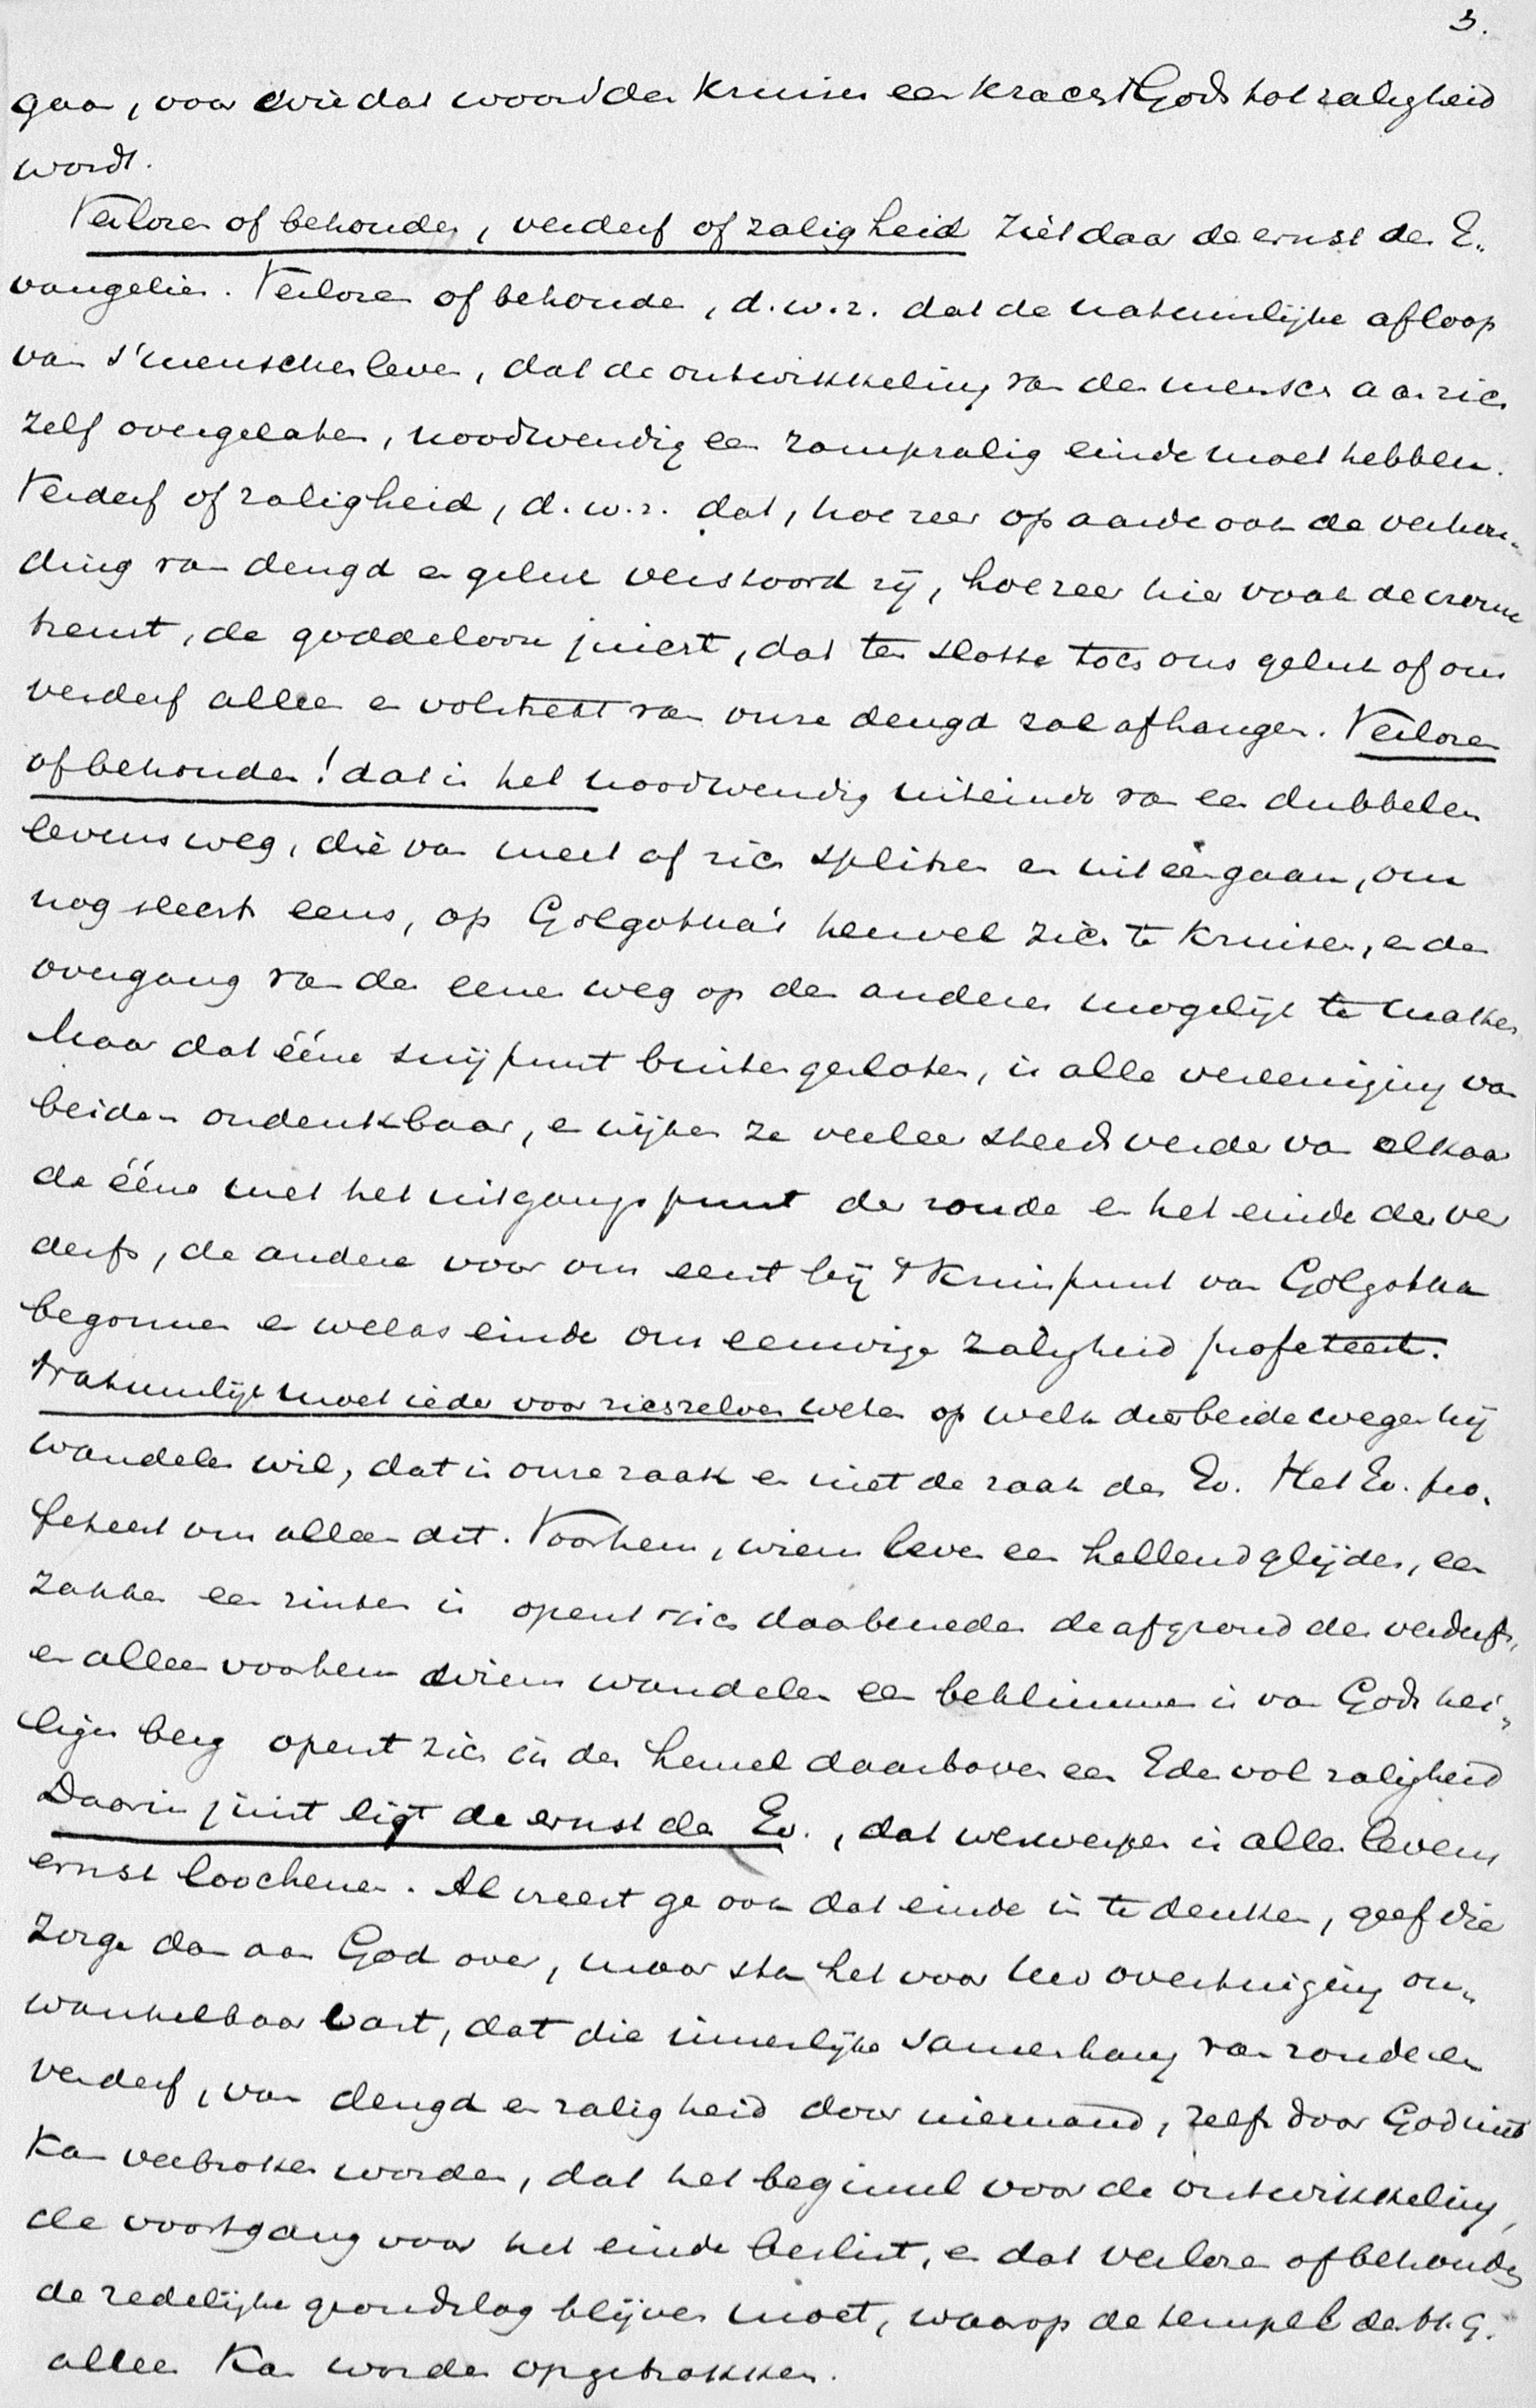 3.
gaan, voor wie dat woord des Kruises een Kracht Gods tot zaligheid
wordt.
Verloren of behouden, verderf of zaligheid ziet daar de ernst des E-
vangelies. Verloren of behouden, d.w.z. dat de natuurlijke afloop
van 's menschen leven, dat de ontwikkeling van den mensch aan zich
zelf overgelaten, noodwendig een rampzalig einde moet hebben.
Verderf of zaligheid, d.w.z. dat, hoezeer op aarde ook de verhou-
ding van deugd en geluk verstoord zij, hoezeer hier vaak de vrome
treurt, de goddelooze juicht, dat ten slotte toch ons geluk of ons
verderf alleen en volstrekt van onze deugd zal afhangen. Verloren
of behouden! dat is het noodwendig uiteinde van een dubbelen
levensweg, die van meet af zich splitsen en uitééngaan, om
nog slechts eens, op Golgotha's heuvel zich te kruisen, en den
overgang van den eenen weg op den anderen mogelijk te maken
Maar dat ééne snijpunt buitengesloten, is alle vereeniging van
beiden ondenkbaar, en wijken ze veeleer steeds verder van elkaar
de ééne met het uitgangspunt der zonde en het einde des ver
derfs, de andere voor ons eerst bij 't Kruispunt van Golgotha
begonnen en welks einde ons eeuwige zaligheid profeteert.
Natuurlijk moet ieder voor zichzelven weten op welk dier beide wegen hij
wandelen wil, dat is onze zaak en niet de zaak des Ev. Het Ev. pro-
feteert ons alleen dit. Voor hem, wiens leven een hellend glijden, een
zakken een zinken is opent zich daarbeneden de afgrond des verderfs,
en alleen voor hem wiens wandelen een beklimmen is van Gods hei-
ligen berg opent zich in den hemel daarboven een Eden vol zaligheid
Daarin juist ligt de ernst des Ev., dat verwerpen is allen levens
ernst loochenen. Al vreest ge ook dat einde in te denken, geef die
zorge dan aan God over, maar sta het voor uw overtuiging on-
wankelbaar vast, dat die innerlijke samenhang van zonde en
verderf, van deugd en zaligheid door niemand, zelfs door God niet
Kan verbroken worden, dat het beginsel voor de ontwikkeling,
de voortgang voor het einde beslist, en dat verloren of behouden
de zedelijke grondslag blijven moet, waarop de tempel des K.G.
alleen Kan worden opgetrokken.